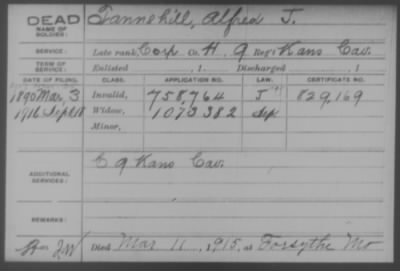 DEAD
NAME OF SOLDIER: Tannehill, Alfred J.
SERVICE: Late rank, Corp. Co. H, 9 Reg't Kans Cav.
TERM OF SERVICE: Enlisted , 1 . Discharged , 1
DATE OF FILING. CLASS. APPLICATION NO. LAW. CERTIFICATE NO.
1890 Mar 3 Invalid, 758,764 J 829,169
1916 Sept 18 Widow, 1073382 Sep
Minor,
ADDITIONAL SERVICES: C 9 Kans Cav.
REMARKS:
Died Mar 11, 1915, at Forsythe Mo